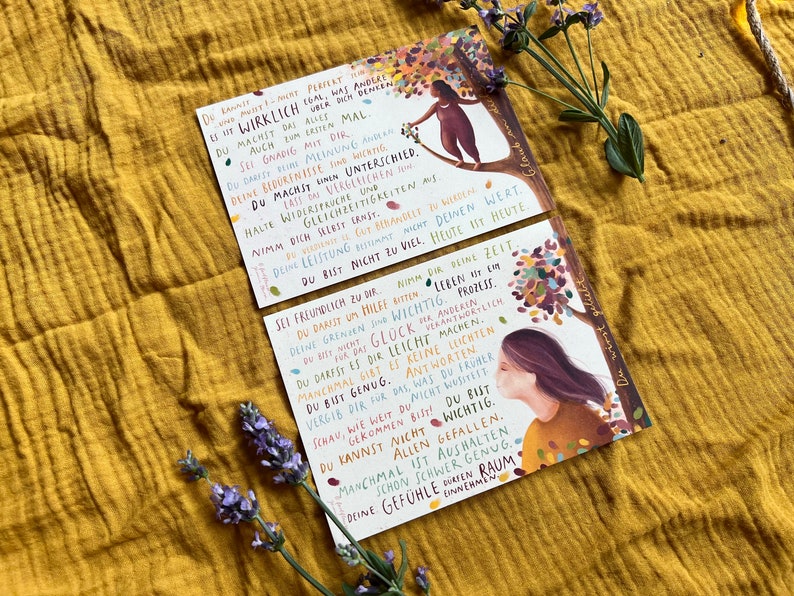 DU KANNST
UND MUSST NICHT PERFEKT SEIN.
ES IST WIRKLICH EGAL, WAS ANDERE
ÜBER DICH DENKEN
DU MACHST DAS ALLES
AUCH ZUM ERSTEN MAL.
SEI GNÄDIG MIT DIR.
DU DARFST DEINE MEINUNG ÄNDERN
DEINE BEDÜRFNISSE SIND WICHTIG.
DU MACHST EINEN UNTERSCHIED.
LASS DAS VERGLEICHEN SEIN.
HALTE WIDERSPRÜCHE UND
GLEICHZEITIGKEITEN AUS.
NIMM DICH SELBST ERNST.
DU VERDIENST ES, GUT BEHANDELT ZU WERDEN
DEINE LEISTUNG BESTIMMT NICHT DEINEN WERT.
DU BIST NICHT ZU VIEL. HEUTE IST HEUTE.
Glaub an
SEI FREUNDLICH ZU DIR. NIMM DIR DEINE ZEIT.
DU DARFST UM HILFE BITTEN. LEBEN IST EIN
PROZESS.
DEINE GRENZEN SIND WICHTIG.
DU BIST NICHT
FÜR DAS GLÜCK DER ANDEREN
VERANTWORTLICH.
DU DARFST ES DIR LEICHT MACHEN.
MANCHMAL GIBT ES KEINE LEICHTEN
ANTWORTEN.
DU BIST GENUG.
VERGIB DIR FÜR DAS, WAS DU FRÜHER
NICHT WUSSTEST
SCHAU, WIE WEIT DU
GEKOMMEN BIST!
DU BIST
WICHTIG.
DU KANNST NICHT
ALLEN GEFALLEN.
MANCHMAL IST AUSHALTEN
SCHON SCHWER GENUG.
DEINE GEFÜHLE DÜRFEN RAUM
EINNEHMEN
Du wirst geliebt